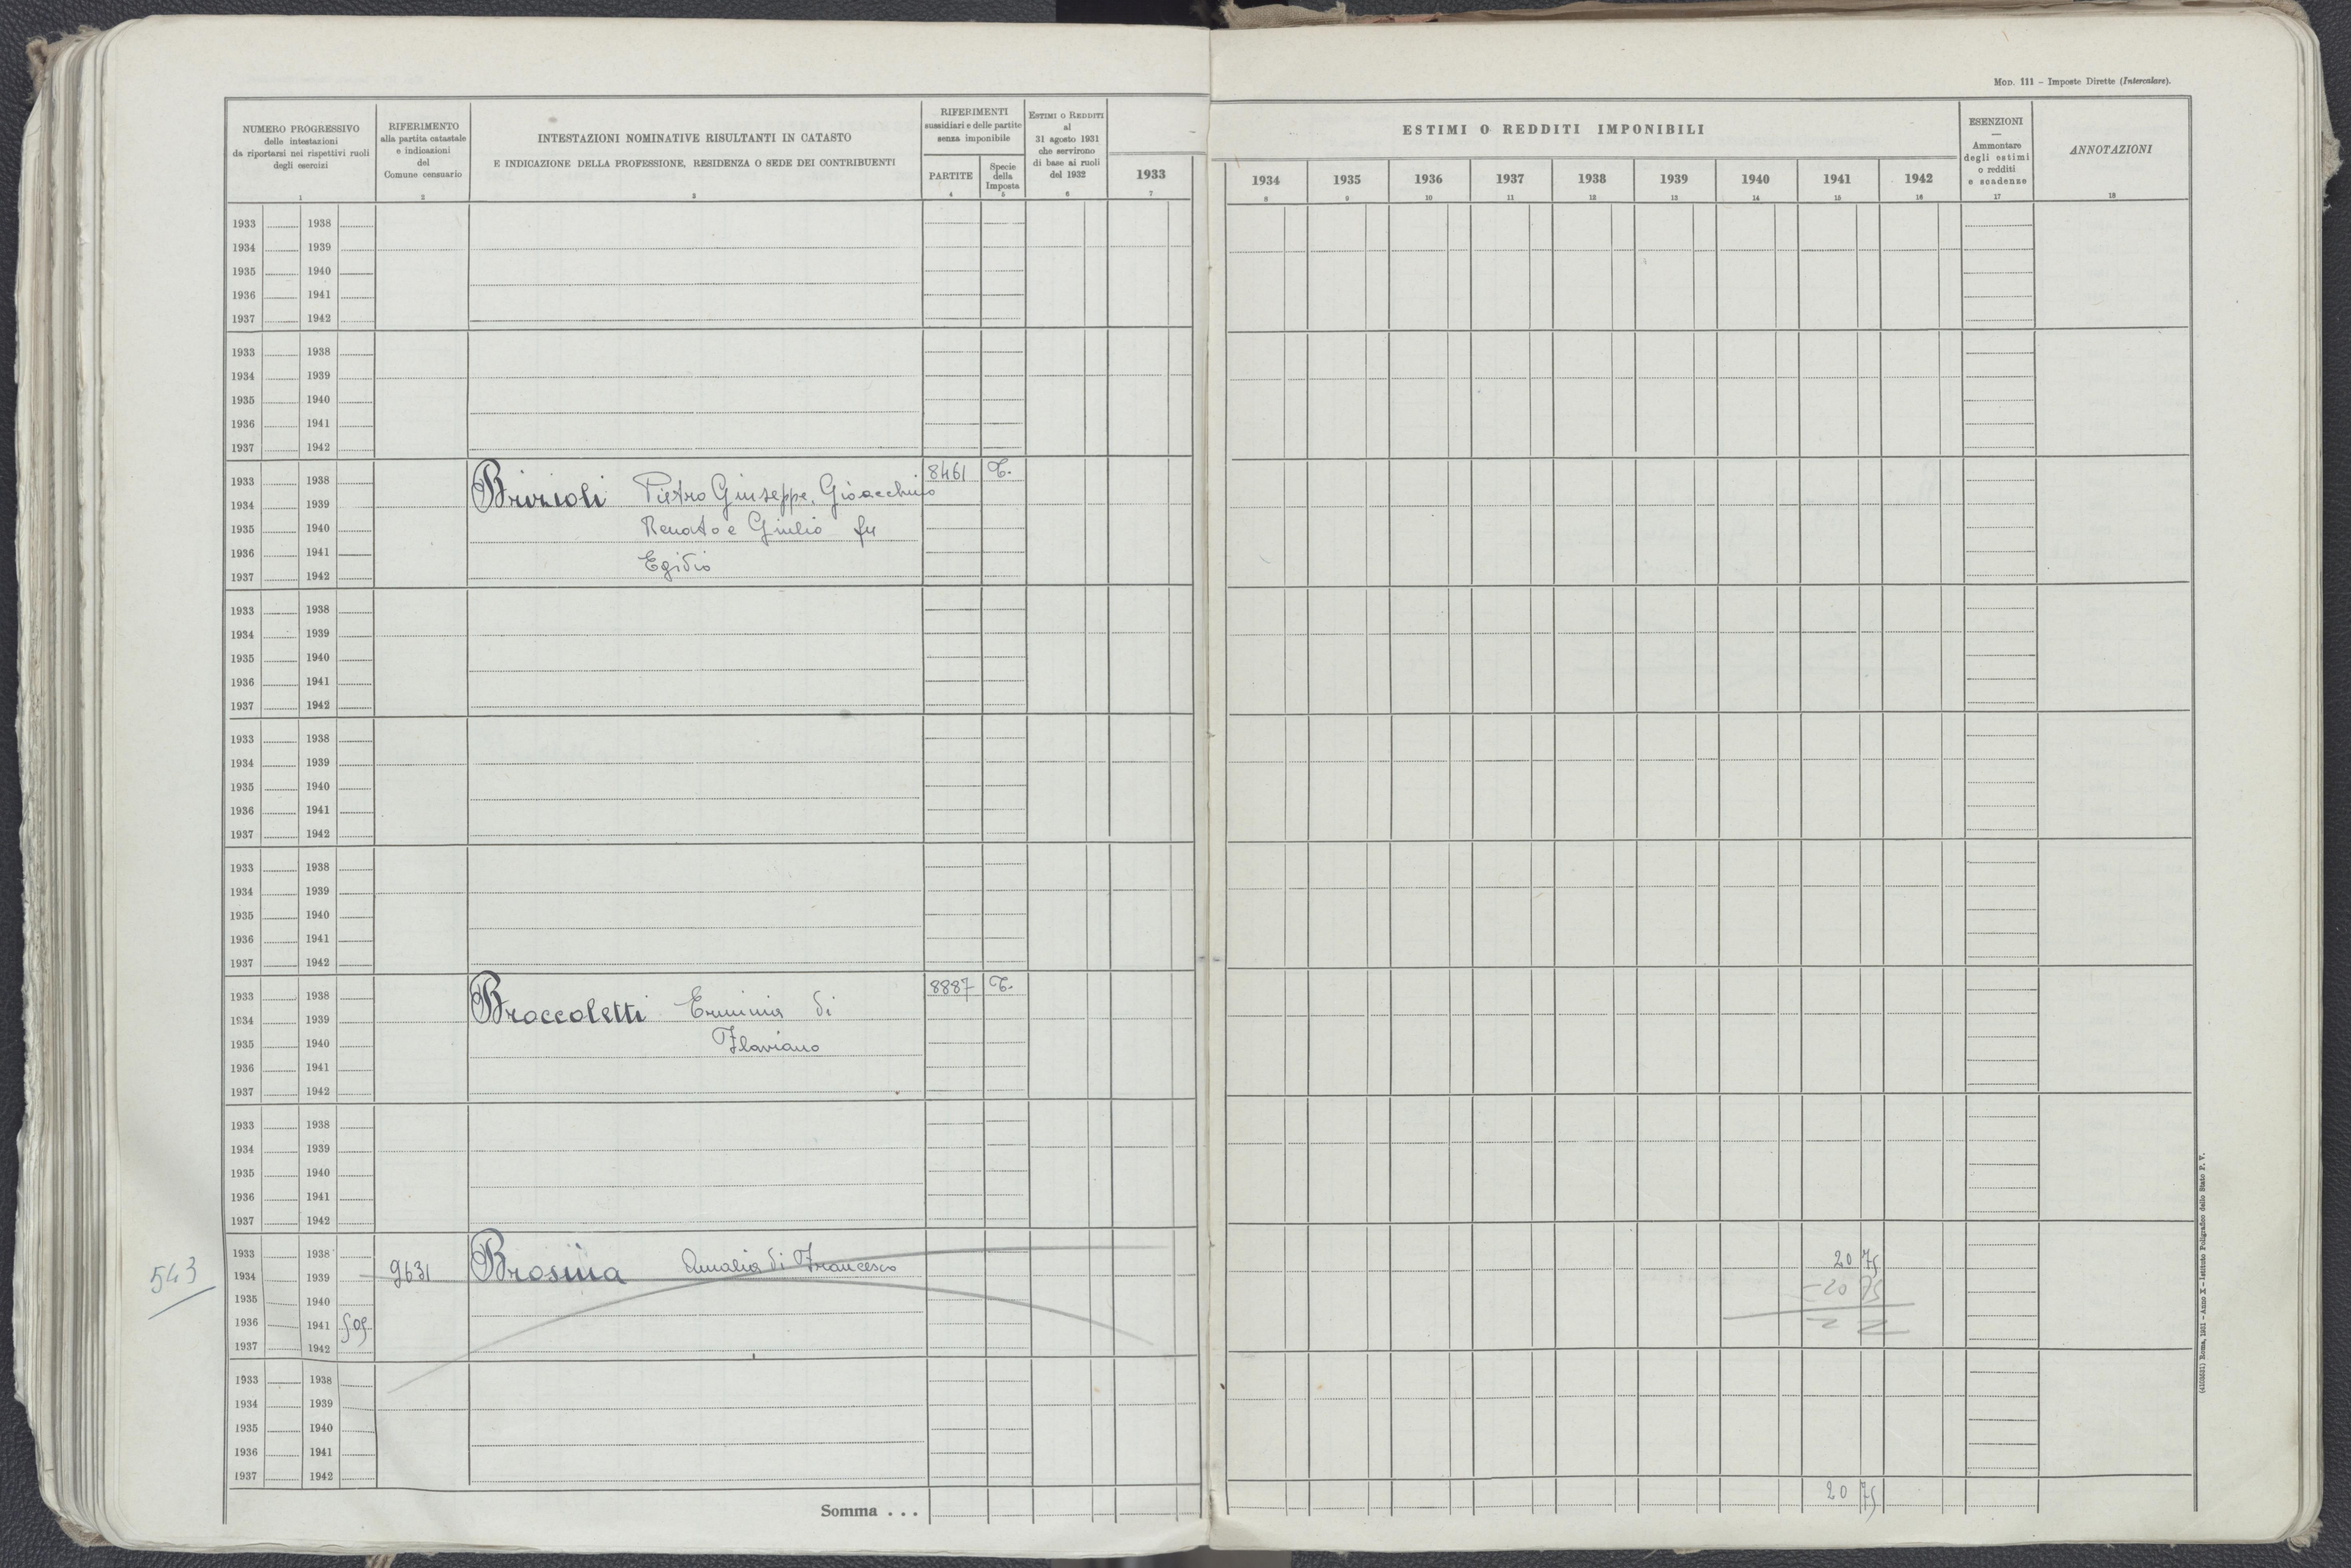 Mod. 111 – Imposte Dirette (Intercalare).
NUMERO PROGRESSIVO
delle intestazioni
da riportarsi nei rispettivi ruoli
degli esercizi
1
RIFERIMENTO
alla partita catastale
e indicazioni
del
Comune censuario
2
INTESTAZIONI NOMINATIVE RISULTANTI IN CATASTO
E INDICAZIONE DELLA PROFESSIONE, RESIDENZA O SEDE DEI CONTRIBUENTI
3
RIFERIMENTI
sussidiari e delle partite
senza imponibile
PARTITE
4
Specie
della
Imposta
5
Estimi o Redditi
al
31 agosto 1931
che servirono
di base ai ruoli
del 1932
6
1933
7
ESTIMI O REDDITI IMPONIBILI
1934 1935 1936 1937 1938 1939 1940 1941 1942
8 9 10 11 12 13 14 15 16
ESENZIONI
—
Ammontare
degli estimi
o redditi
e scadenze
17
ANNOTAZIONI
18
1933 1938
1934 1939
1935 1940
1936 1941
1937 1942
1933 1938
1934 1939
1935 1940
1936 1941
1937 1942
1933 1938 8461 T.
1934 1939 Brizioli Pietro Giuseppe, Gioacchino
1935 1940 Renato e Giulio fu
1936 1941 Egidio
1937 1942
1933 1938
1934 1939
1935 1940
1936 1941
1937 1942
1933 1938
1934 1939
1935 1940
1936 1941
1937 1942
1933 1938
1934 1939
1935 1940
1936 1941
1937 1942
1933 1938 8887 T.
1934 1939 Broccoletti Erminia di
1935 1940 Flaviano
1936 1941
1937 1942
1933 1938
1934 1939
1935 1940
1936 1941
1937 1942
1933 1938 20 75
543 1934 1939 9631 Brosina Amalia di Francesco
1935 1940 – 20 75
1936 1941 505
1937 1942
1933 1938
1934 1939
1935 1940
1936 1941
1937 1942
Somma . . . 20 75
(4103531) Roma, 1931 – Anno X – Istituto Poligrafico dello Stato P. V.